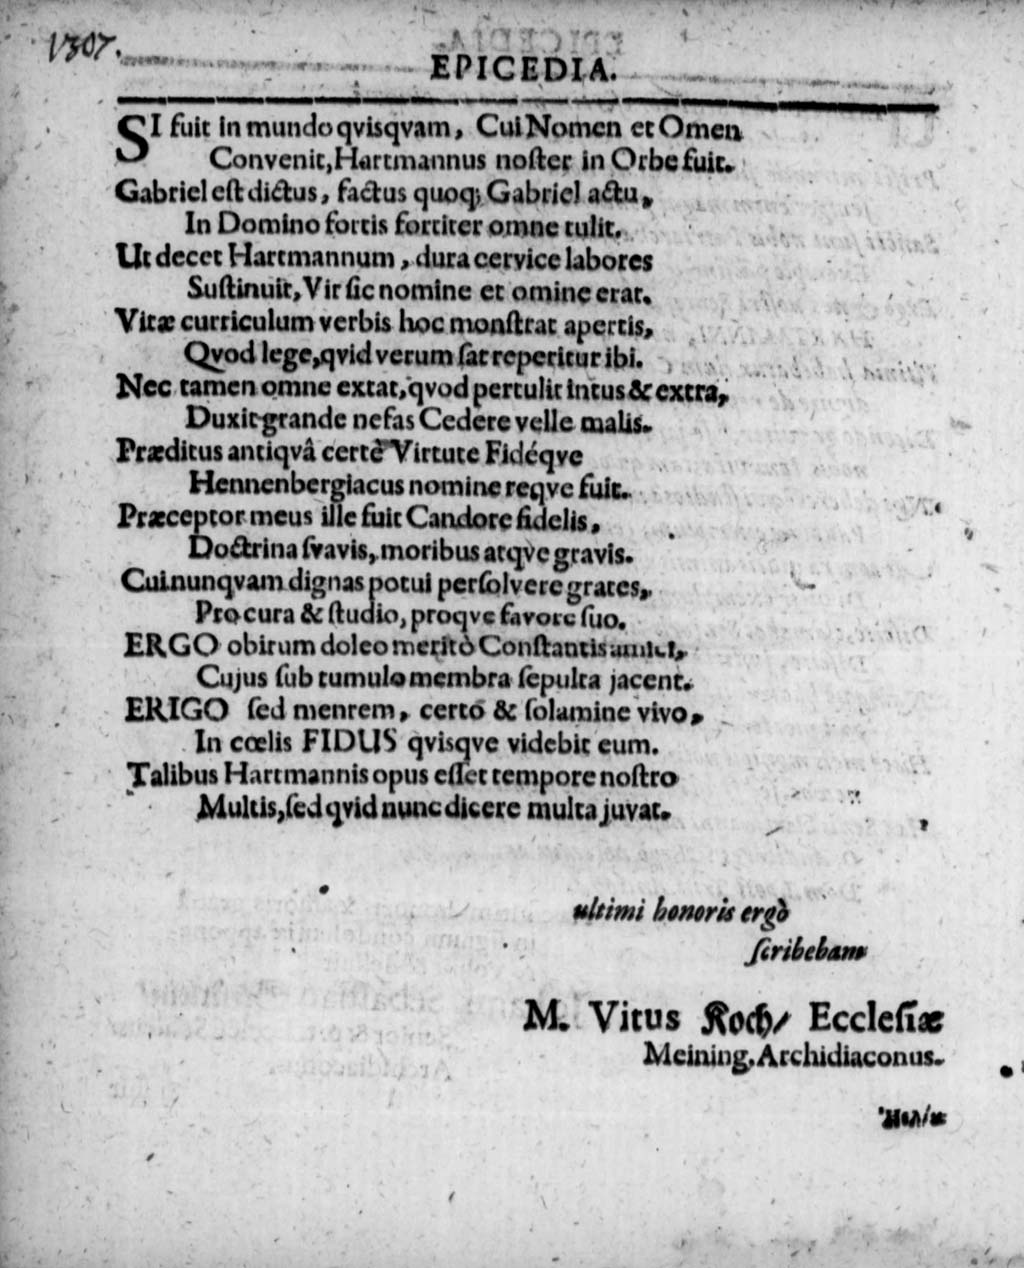 1307.
EPICEDIA.
SI fuit in mundo qvisqvam, Cui Nomen et Omen
Convenit, Hartmannus noſter in Orbe fuit.
Gabriel eſt dictus, factus quoq; Gabriel actu,
In Domino fortis fortiter omne tulit.
Ut decet Hartmannum, dura cervice labores
Suſtinuit, Vir ſic nomine et omine erat.
Vitæ curriculum verbis hoc monſtrat apertis,
Qvod lege, qvid verum ſat reperitur ibi.
Nec tamen omne extat, qvod pertulit intus & extra,
Duxit grande nefas Cedere velle malis.
Præditus antiqvâ certè Virtute Fidéqve
Hennenbergiacus nomine reqve fuit.
Præceptor meus ille fuit Candore fidelis,
Doctrina ſvavis, moribus atqve gravis.
Cui nunqvam dignas potui perſolvere grates,
Pro cura & ſtudio, proqve favore ſuo.
ERGO obitum doleo meritò Conſtantis amici,
Cujus ſub tumulo membra ſepulta jacent.
ERIGO ſed mentem, certo & ſolamine vivo,
In cœlis FIDUS qvisqve videbit eum.
Talibus Hartmannis opus eſſet tempore noſtro
Multis, ſed qvid nunc dicere multa juvat.
ultimi honoris ergò
ſcribebam
M. Vitus Koch/ Eccleſiæ
Meining. Archidiaconus.